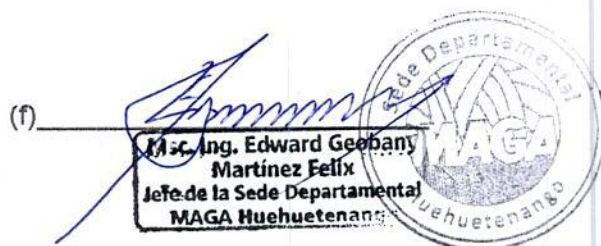 (f)
Msc. Ing. Edward Geobany
Martínez Felix
Jefe de la Sede Departamental
MAGA Huehuetenango
Sede Departamental
MAGA
Huehuetenango